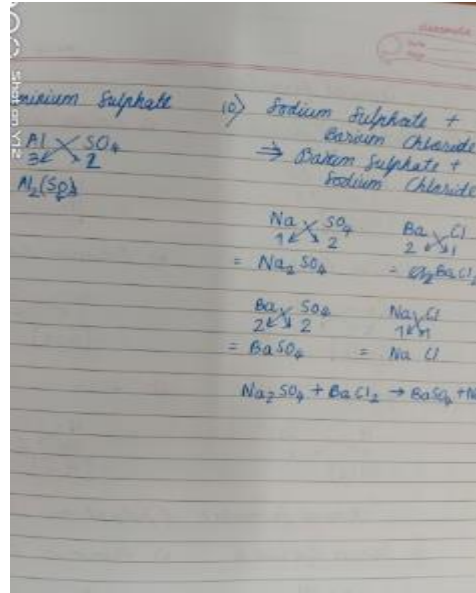 Shot on Y12
minium Sulphate
Al SO4
3 2
Al2(SO4)3
10) Sodium Sulphate +
Barium Chloride
⇒ Barium Sulphate +
Sodium Chloride
Na SO4 Ba Cl
1 2 2 1
= Na2 SO4 = BaCl2
Ba SO4 Na Cl
2 2 1 1
= BaSO4 = Na Cl
Na2SO4 + BaCl2 → BaSO4 + N